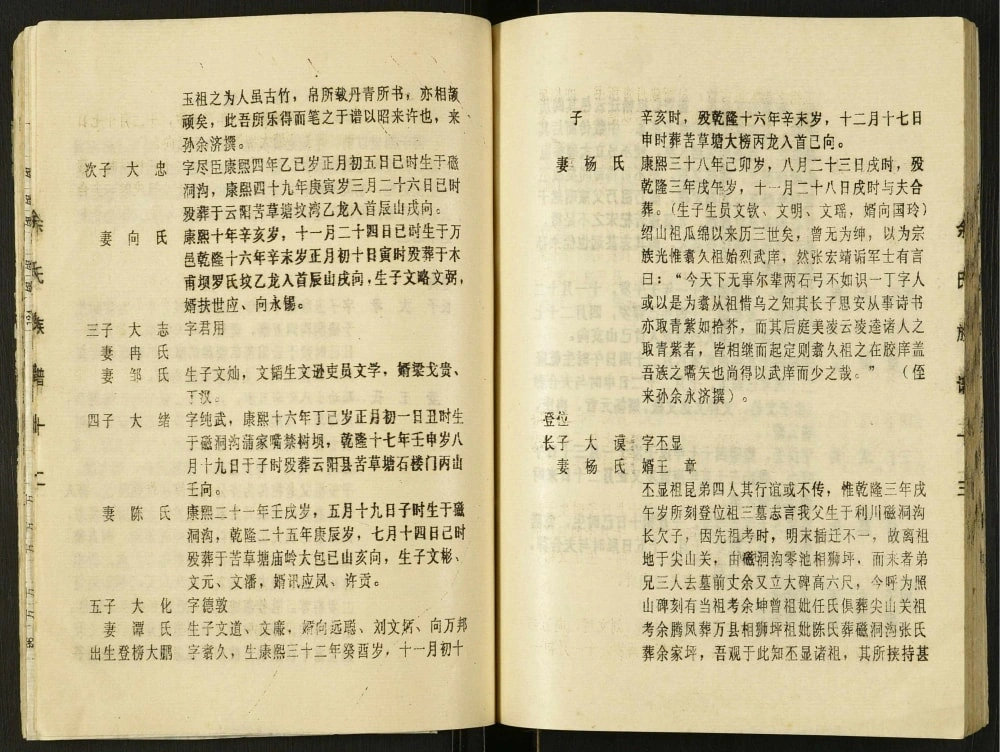 玉祖之为人虽古竹，帛所载丹青所书，亦相颉
颃矣，此吾所乐得而笔之于谱以昭来许也，来
孙余济撰。
次子 大 忠 字尽臣康熙四年乙巳岁正月初五日已时生于磁
洞沟，康熙四十九年庚寅岁三月二十六日已时
殁葬于云阳苦草塘坟湾乙龙入首辰山戌向。
妻 向 氏 康熙十年辛亥岁，十一月二十四日已时生于万
邑乾隆十六年辛未岁正月初十日寅时殁葬于木
甫坝罗氏坟乙龙入首辰山戌向，生子文略文弼，
婿扶世应、向永锡。
三子 大 志 字君用
妻 冉 氏
妻 邹 氏 生子文灿，文韬生文逊吏员文学，婿梁戈贵、
丁汉。
四子 大 绪 字纯武，康熙十六年丁巳岁正月初一日丑时生
于磁洞沟蒲家嘴禁树坝，乾隆十七年壬申岁八
月十九日于子时殁葬云阳县苦草塘石楼门丙山
壬向。
妻 陈 氏 康熙二十一年壬戌岁，五月十九日子时生于磁
洞沟，乾隆二十五年庚辰岁，七月十四日已时
殁葬于苦草塘庙岭大包巳山亥向，生子文彬、
文元、文潘，婿汛应凤、许贡。
五子 大 化 字德敦
妻 谭 氏 生子文道、文廉，婿向远聪、刘文炳、向万邦
出生登榜大鹏 字翥久，生康熙三十二年癸酉岁，十一月初十
余氏族谱 十二
子 辛亥时，殁乾隆十六年辛未岁，十二月十七日
申时葬苦草塘大榜丙龙入首巳向。
妻 杨 氏 康熙三十八年己卯岁，八月二十三日戌时，殁
乾隆三年戊午岁，十一月二十八日戌时与夫合
葬。（生子生员文钦、文明、文瑶，婿向国玲）
绍山祖瓜绵以来历三世矣，曾无为绅，以为宗
族光惟翥久祖始烈武庠，然张宏靖诟军士有言
曰：“今天下无事尔辈两石弓不如识一丁字人
或以是为翥从祖惜乌之知其长子思安从事诗书
亦取青紫如拾芥，而其后庭美凌云骏逵诸人之
取青紫者，皆相继而起定则翥久祖之在胶庠盖
吾族之嚆矢也尚得以武庠而少之哉。”（侄
来孙余永济撰）。
登位
长子 大 谟：字丕显
妻 杨 氏 婿王 章
丕显祖昆弟四人其行谊或不传，惟乾隆三年戌
午岁所刻登位祖三墓志言我父生于利川磁洞沟
长欠子，因先祖考时，明末搔迁不一，故离祖
地于尖山关，由磁洞沟零池相狮坪，而来者弟
兄三人去墓前丈余又立大碑高六尺，今呼为照
山碑刻有当祖考余坤曾祖妣任氏俱葬尖山关祖
考余腾凤葬万县相狮坪祖妣陈氏葬磁洞沟张氏
葬余家坪，吾观于此知丕显诸祖，其所挟持甚
余氏族谱 十三